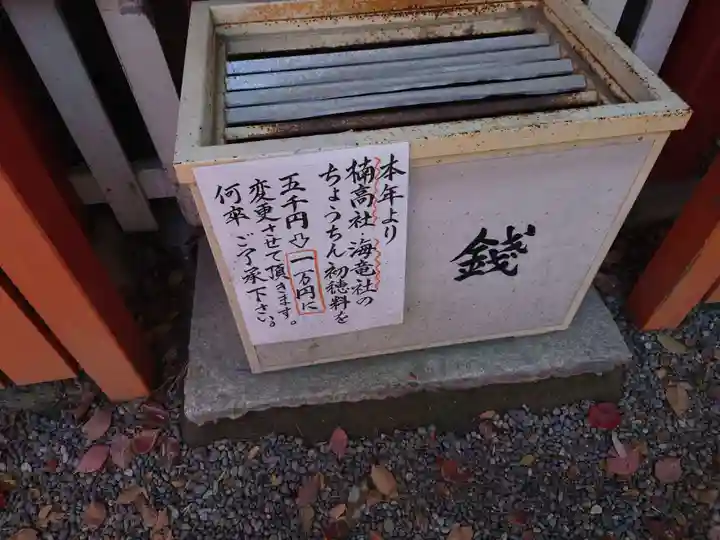 本年より
楠高社 海竜社の
ちょうちん初穂料を
五千円⇨一万円に
変更させて頂きます。
何卒ご了承下さい。
銭